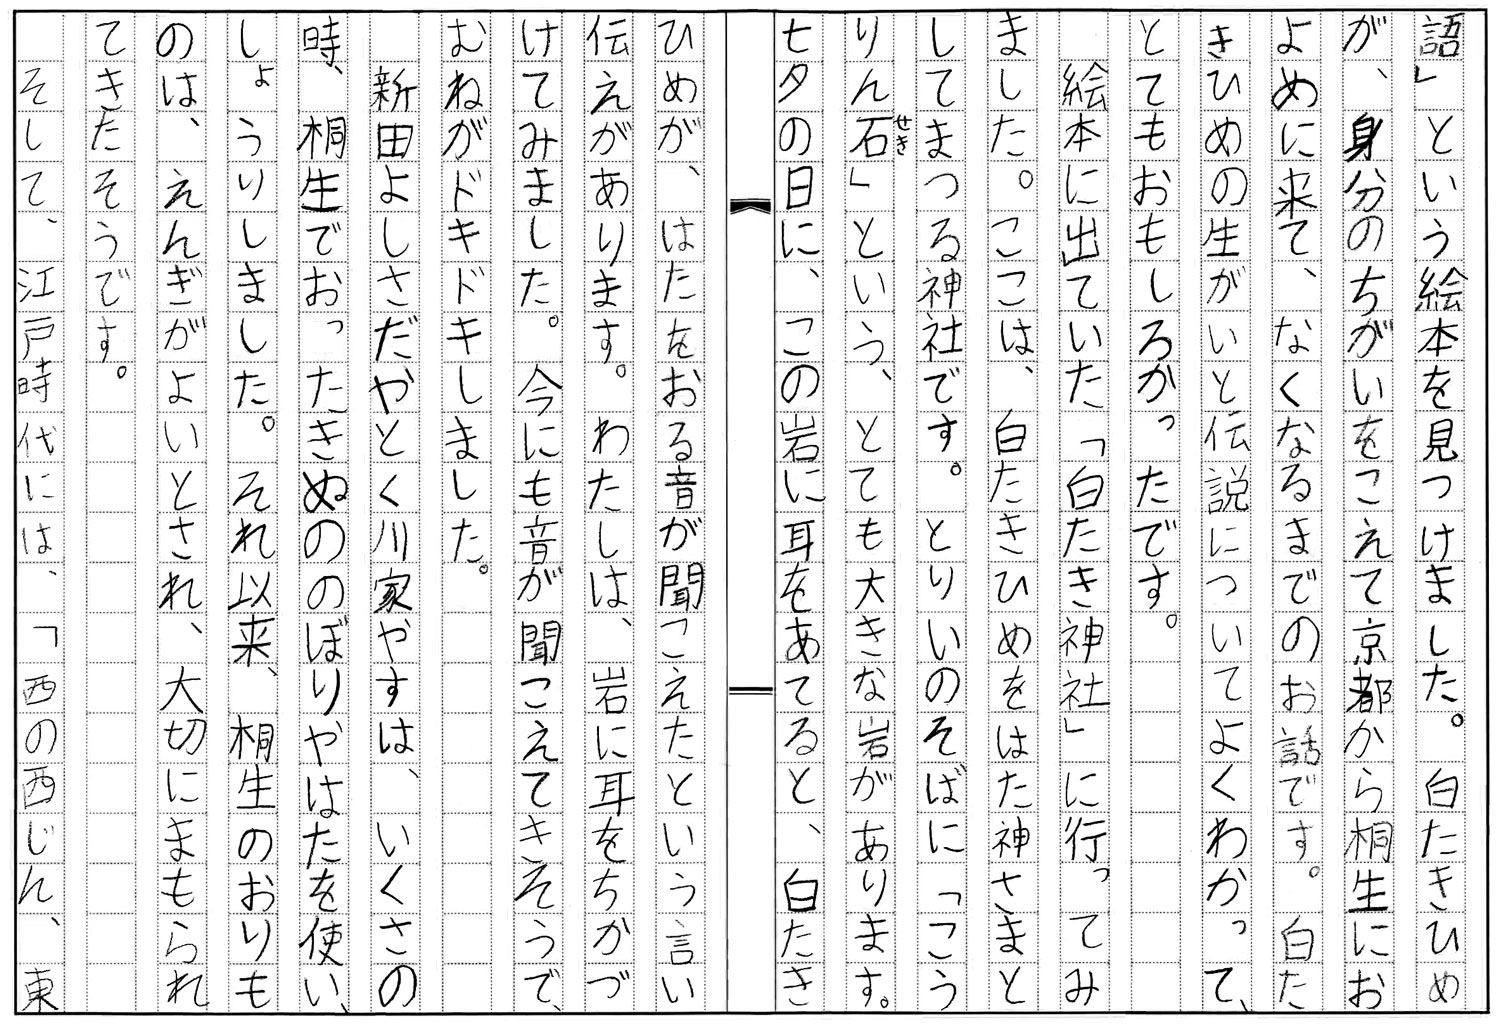 語」という絵本を見つけました。白たきひめ
が、身分のちがいをこえて京都から桐生にお
よめに来て、なくなるまでのお話です。白た
きひめの生がいと伝説についてよくわかって、
とてもおもしろかったです。
絵本に出ていた「白たき神社」に行ってみ
ました。ここは、白たきひめをはた神さまと
してまつる神社です。とりいのそばに「こう
りん石せき」という、とても大きな岩があります。
七夕の日に、この岩に耳をあてると、白たき
ひめが、はたをおる音が聞こえたという言い
伝えがあります。わたしは、岩に耳をちかづ
けてみました。今にも音が聞こえてきそうで、
むねがドキドキしました。
新田よしさだやとく川家やすは、いくさの
時、桐生でおったきぬののぼりやはたを使い、
しょうりしました。それ以来、桐生のおりも
のは、えんぎがよいとされ、大切にまもられ
てきたそうです。
そして、江戸時代には、「西の西じん、東